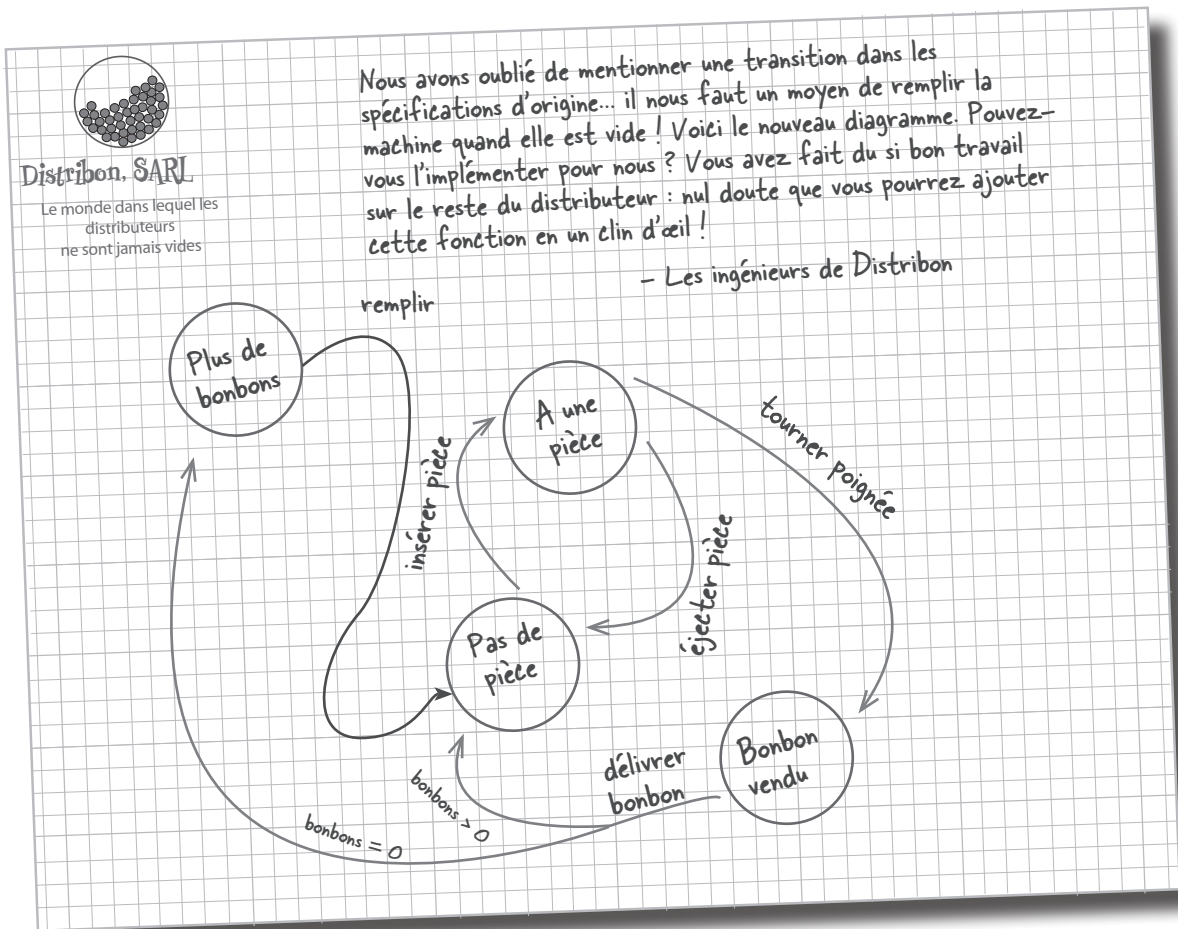 Distribon, SARL
Le monde dans lequel les
distributeurs
ne sont jamais vides
Nous avons oublié de mentionner une transition dans les
spécifications d'origine... il nous faut un moyen de remplir la
machine quand elle est vide ! Voici le nouveau diagramme. Pouvez-
vous l'implémenter pour nous ? Vous avez fait du si bon travail
sur le reste du distributeur : nul doute que vous pourrez ajouter
cette fonction en un clin d'œil !
– Les ingénieurs de Distribon
remplir
Plus de
bonbons
A une
pièce
tourner poignée
insérer pièce
éjecter pièce
Pas de
pièce
Bonbon
vendu
délivrer
bonbon
bonbons > 0
bonbons = 0